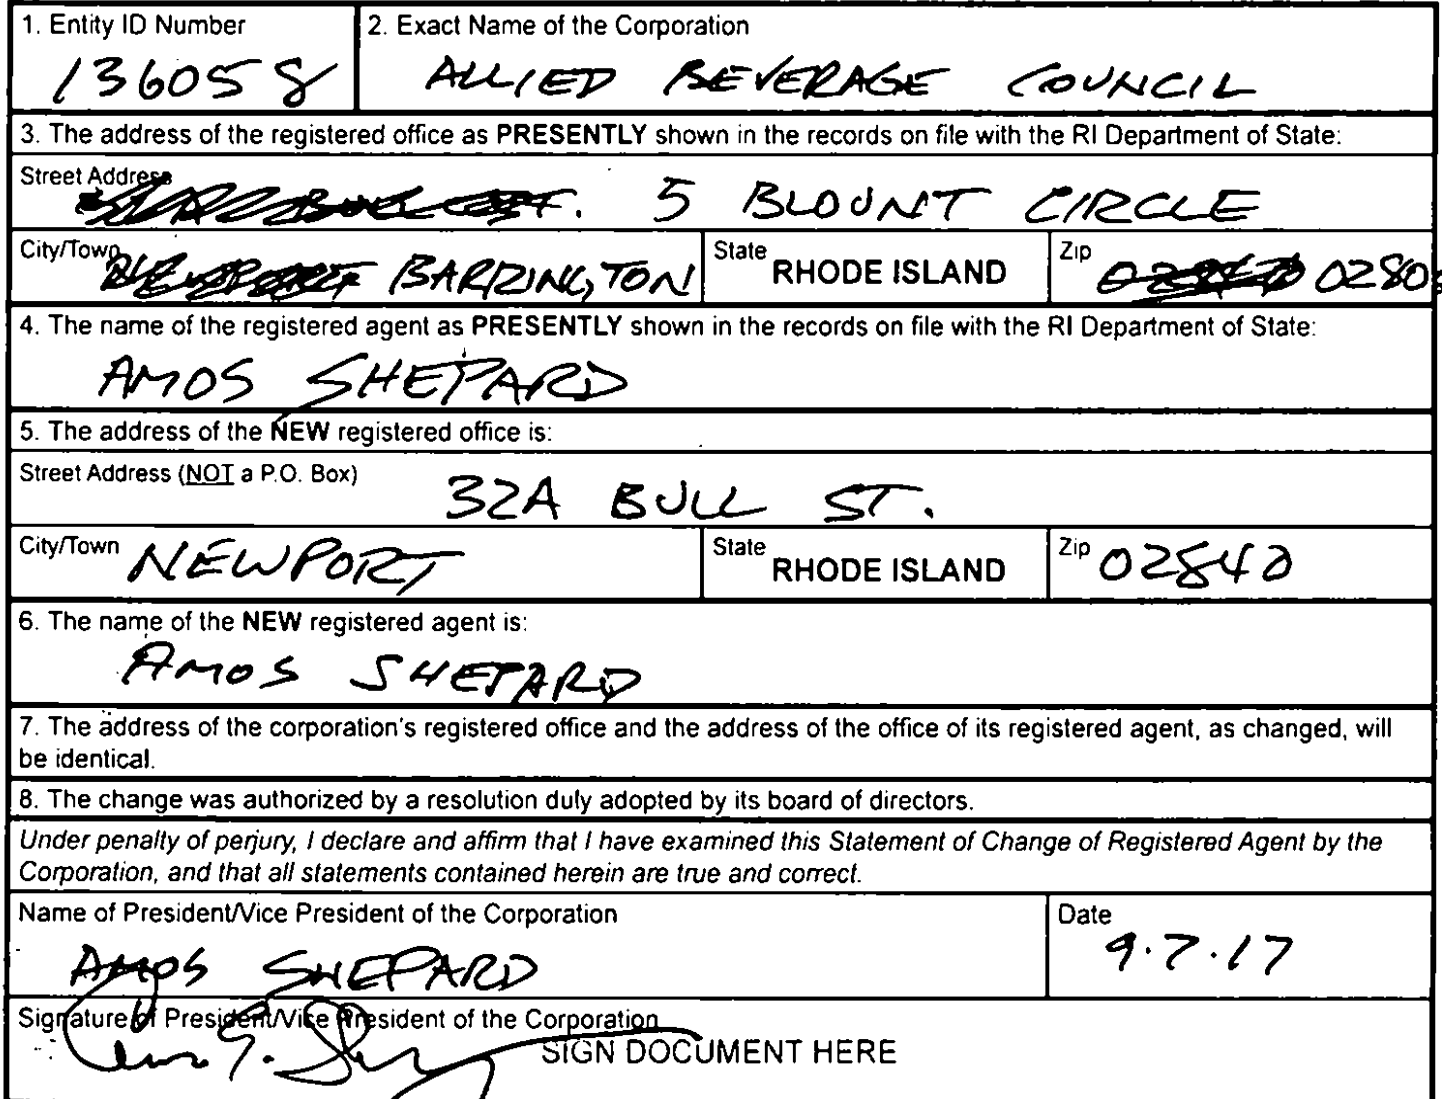 1. Entity ID Number
136058
2. Exact Name of the Corporation
ALLIED BEVERAGE COUNCIL
3. The address of the registered office as PRESENTLY shown in the records on file with the RI Department of State:
Street Address
5 BLOUNT CIRCLE
City/Town
BARRINGTON
State
RHODE ISLAND
Zip
4. The name of the registered agent as PRESENTLY shown in the records on file with the RI Department of State:
AMOS SHEPARD
5. The address of the NEW registered office is:
Street Address (NOT a P.O. Box)
32A BULL ST.
City/Town NEWPORT
State
RHODE ISLAND
Zip 02840
6. The name of the NEW registered agent is:
AMOS SHEPARD
7. The address of the corporation's registered office and the address of the office of its registered agent, as changed, will
be identical.
8. The change was authorized by a resolution duly adopted by its board of directors.
Under penalty of perjury, I declare and affirm that I have examined this Statement of Change of Registered Agent by the
Corporation, and that all statements contained herein are true and correct.
Name of President/Vice President of the Corporation
AMOS SHEPARD
Date
9.7.17
Signature of President/Vice President of the Corporation
SIGN DOCUMENT HERE